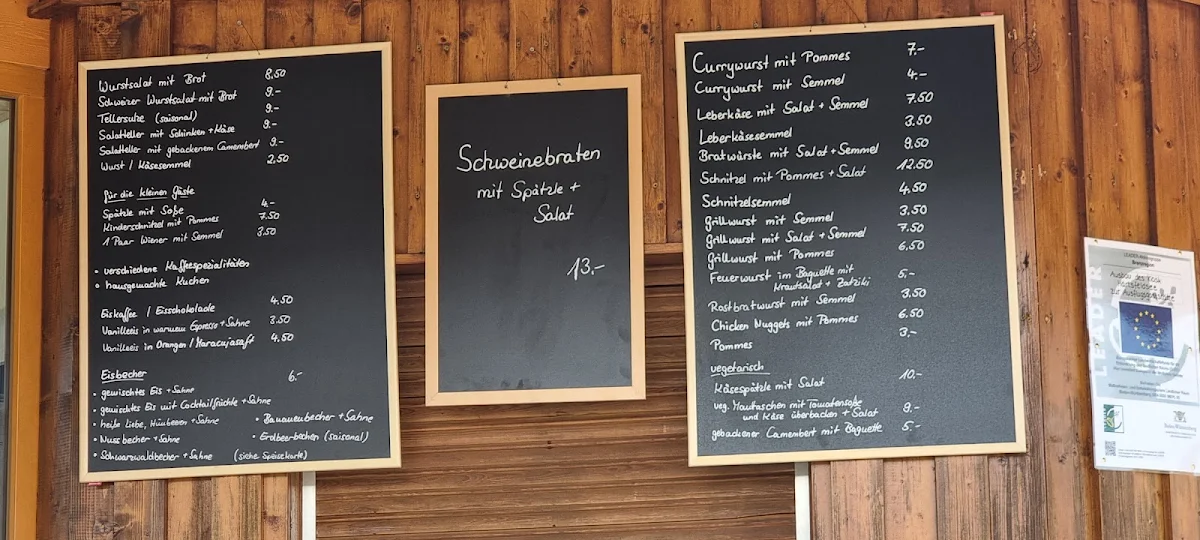 Wurstsalat mit Brot 8,50
Schweizer Wurstsalat mit Brot 9.-
Tellersulze (saisonal) 9.-
Salatteller mit Schinken + Käse 9.-
Salatteller mit gebackenem Camembert 9.-
Wurst / Käsesemmel 2,50
für die kleinen Gäste
Spätzle mit Soße 4.-
Kinderschnitzel mit Pommes 7.50
1 Paar Wiener mit Semmel 3.50
• verschiedene Kaffeespezialitäten
• hausgemachte Kuchen
Eiskaffee / Eisschokolade 4.50
Vanilleeis in warmem Espresso + Sahne 3.50
Vanilleeis in Orangen / Maracujasaft 4.50
Eisbecher 6.-
• gemischtes Eis + Sahne
• gemischtes Eis mit Cocktailfrüchte + Sahne
• heiße Liebe, Himbeeren + Sahne
• Bananenbecher + Sahne
• Nussbecher + Sahne
• Erdbeerbecher (saisonal)
• Schwarzwaldbecher + Sahne (siehe Speisekarte)
Schweinebraten
mit Spätzle +
Salat
13.-
Currywurst mit Pommes 7.-
Currywurst mit Semmel 4.-
Leberkäse mit Salat + Semmel 7.50
Leberkäsesemmel 3.50
Bratwürste mit Salat + Semmel 9,50
Schnitzel mit Pommes + Salat 12.50
Schnitzelsemmel 4.50
Grillwurst mit Semmel 3.50
Grillwurst mit Salat + Semmel 7.50
Grillwurst mit Pommes 6,50
Feuerwurst im Baguette mit
Krautsalat + Zatziki 5.-
Rostbratwurst mit Semmel 3.50
Chicken Nuggets mit Pommes 6.50
Pommes 3,-
vegetarisch
Käsespätzle mit Salat 10.-
veg. Maultaschen mit Tomatensoße
und Käse überbacken + Salat 9.-
gebackener Camembert mit Baguette 5.-
LEADER